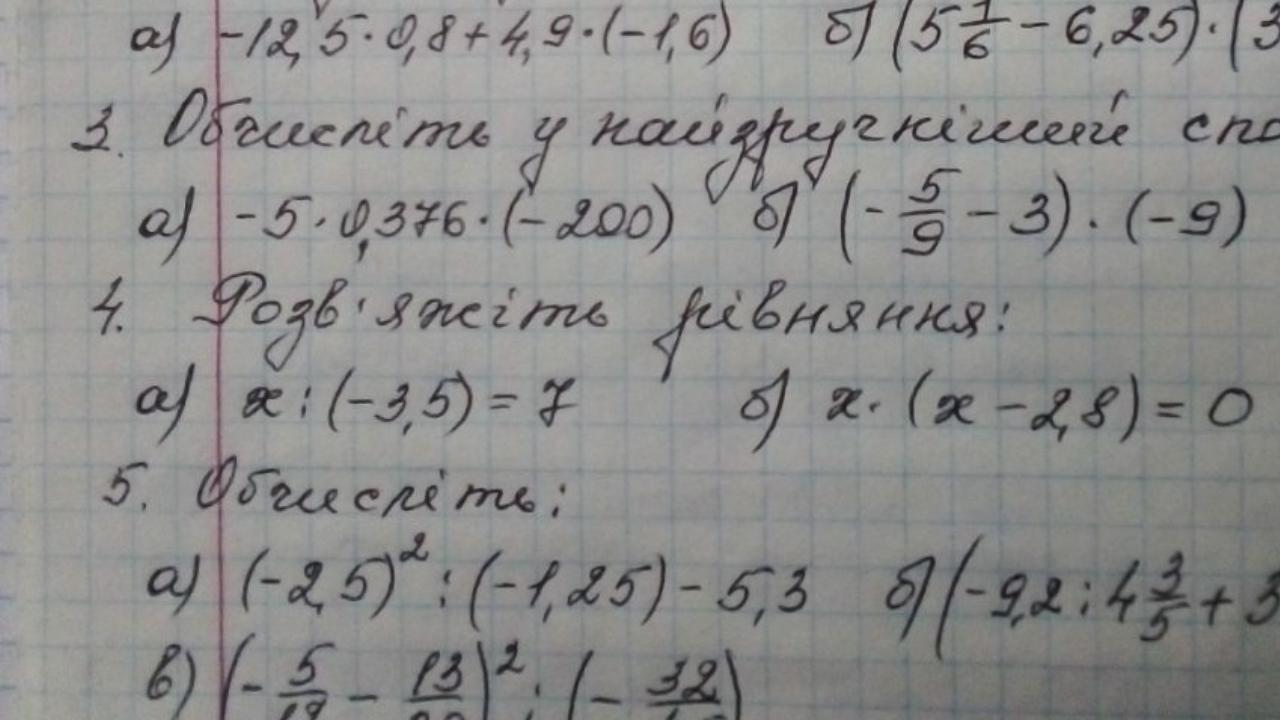 а) -12,5·0,8+4,9·(-1,6) б) (5 1/6 - 6,25)·(3
3. Обчисліть у найзручніший спо
а) -5·0,376·(-200) б) (-5/9 - 3)·(-9)
4. Розв'яжіть рівняння:
а) x:(-3,5)=7 б) x·(x-2,8)=0
5. Обчисліть:
а) (-2,5)²:(-1,25)-5,3 б) (-9,2:4 3/5+3
в) (-5/ - 13/)²:(-32/)